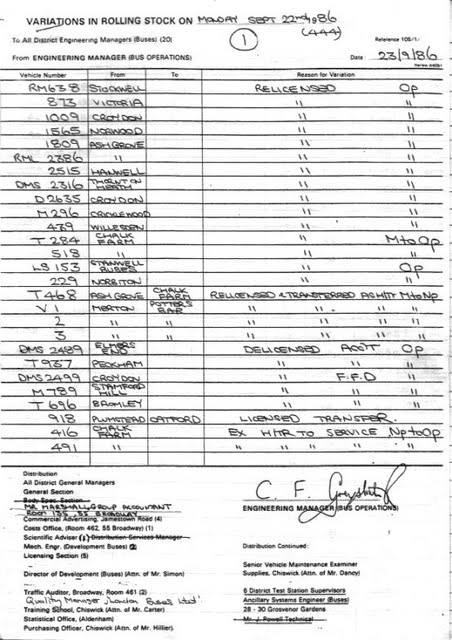 VARIATIONS IN ROLLING STOCK ON MONDAY SEPT 22nd 1986
(444)
To All District Engineering Managers (Buses) (20)
1
Reference 105/1/
From ENGINEERING MANAGER (BUS OPERATIONS)
Date: 23/9/86
Vehicle Number From To Reason for Variation
RM638 STOCKWELL RELICENSED Op
873 VICTORIA " "
1009 CROYDON " "
1565 NORWOOD " "
1809 ASH GROVE " "
RML 2386 " " "
2515 HANWELL " "
DMS 2316 THORNTON HEATH " "
D2635 CROYDON " "
M296 CRICKLEWOOD " "
439 WILLESDEN " "
T 284 CHALK FARM " M to Op
518 " " "
LS 153 STANWELL BUSES " Op
229 NORBITON " "
T468 ASH GROVE CHALK FARM RELICENSED & TRANSFERRED AS HTT M to Np
V1 MERTON POTTERS BAR " " " "
2 " " " " " "
3 " " " " " "
DMS 2489 ELMERS END DELICENSED ACC'T Op
T937 PECKHAM " " "
DMS 2499 CROYDON " F.F.D "
M789 STAMFORD HILL " " "
T696 BROMLEY " " "
918 PLUMSTEAD CATFORD LICENSED TRANSFER.
416 CHALK FARM EX HTR TO SERVICE Np to Op
491 " " " " "
Distribution
All District General Managers
General Section
Body Spec Section
MR MARSHALL, GROUP ACCOUNTANT
ROOM 135, 55 BROADWAY
Commercial Advertising, Jamestown Road (4)
Costs Office, (Room 462, 55 Broadway) (1)
Scientific Adviser (1) Distribution Services Manager
Mech. Engr. (Development Buses) (2)
Licensing Section (5)
Director of Development (Buses) (Attn. of Mr. Simon)
Traffic Auditor, Broadway, Room 461 (2)
Quality Manager, London Buses Ltd
Training School, Chiswick (Attn. of Mr. Carter)
Statistical Office, (Aldenham)
Purchasing Officer, Chiswick (Attn. of Mr. Hillier).
C. F.
ENGINEERING MANAGER (BUS OPERATIONS)
Distribution Continued:
Senior Vehicle Maintenance Examiner
Supplies, Chiswick (Attn. of Mr. Dancy)
6 District Test Station Supervisors
Ancillary Systems Engineer (Buses)
28 - 30 Grosvenor Gardens
Mr. J. Powell Technical